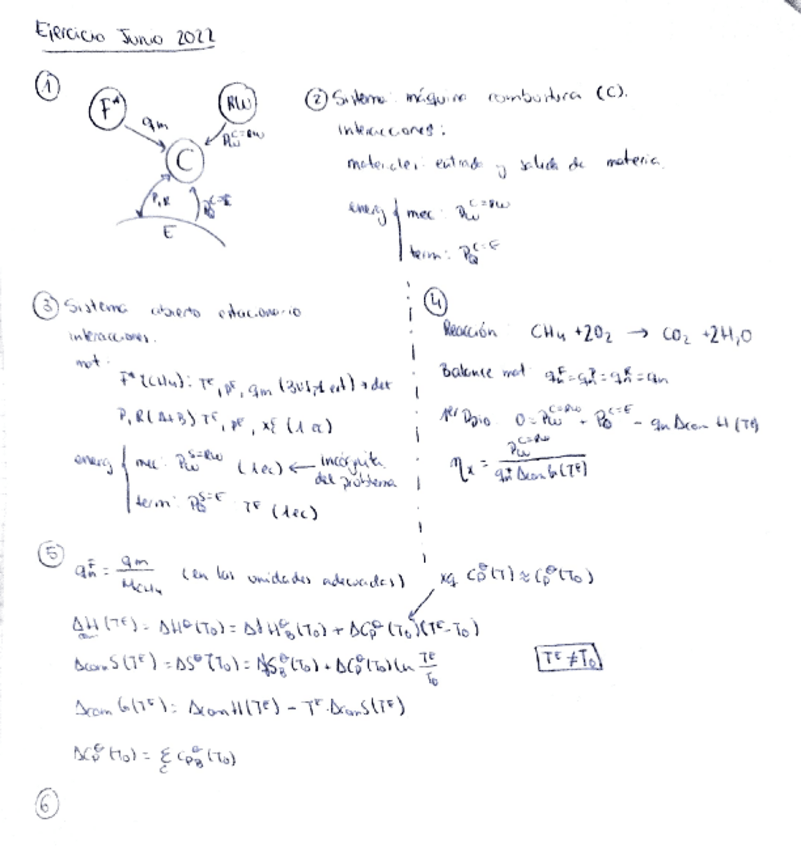 Ejercicio Junio 2022
①
F*
RW
qm
P_W^{C=RW}
C
P,R
P_Q^{C=E}
E
② Sistema: máquina combustora (C).
interacciones:
materiales: entrada y salida de materia.
energ { mec: P_W^{C=RW}
term: P_Q^{C=E}
③ Sistema abierto estacionario
interacciones.
mat.
F* (CH4): T^E, p^E, qm → det
P, R (A+B) T^E, p^E, x_i^E
energ { mec: P_W^{S=RW} (1ec) ← incógnita del problema
term: P_Q^{S=E} T^E (1ec)
④
Reacción CH4 + 2O2 → CO2 + 2H2O
Balance mat
1er Ppio. 0 = P_W^{C=RW} + P_Q^{C=E} - qn Δcom H (T^E)
η_x = P_W^{C=RW} / qn Δcom G (T^E)
⑤
qn^F = qm / M_CH4 (en las unidades adecuadas)
xq Cp^θ(T) ≈ Cp^θ(T0)
ΔH(T^E) = ΔH^θ(T0) = ΔfH_B^θ(T0) + ΔCp^θ(T0)(T^E-T0)
Δcom S(T^E) = ΔS^θ(T0) = S_B^θ(T0) + ΔCp^θ(T0) ln T^E/T0
T^E ≠ T0
Δcom G(T^E) = Δcom H(T^E) - T^E · Δcom S(T^E)
ΔCp^θ(T0) = Σ Cp_B^θ(T0)
⑥